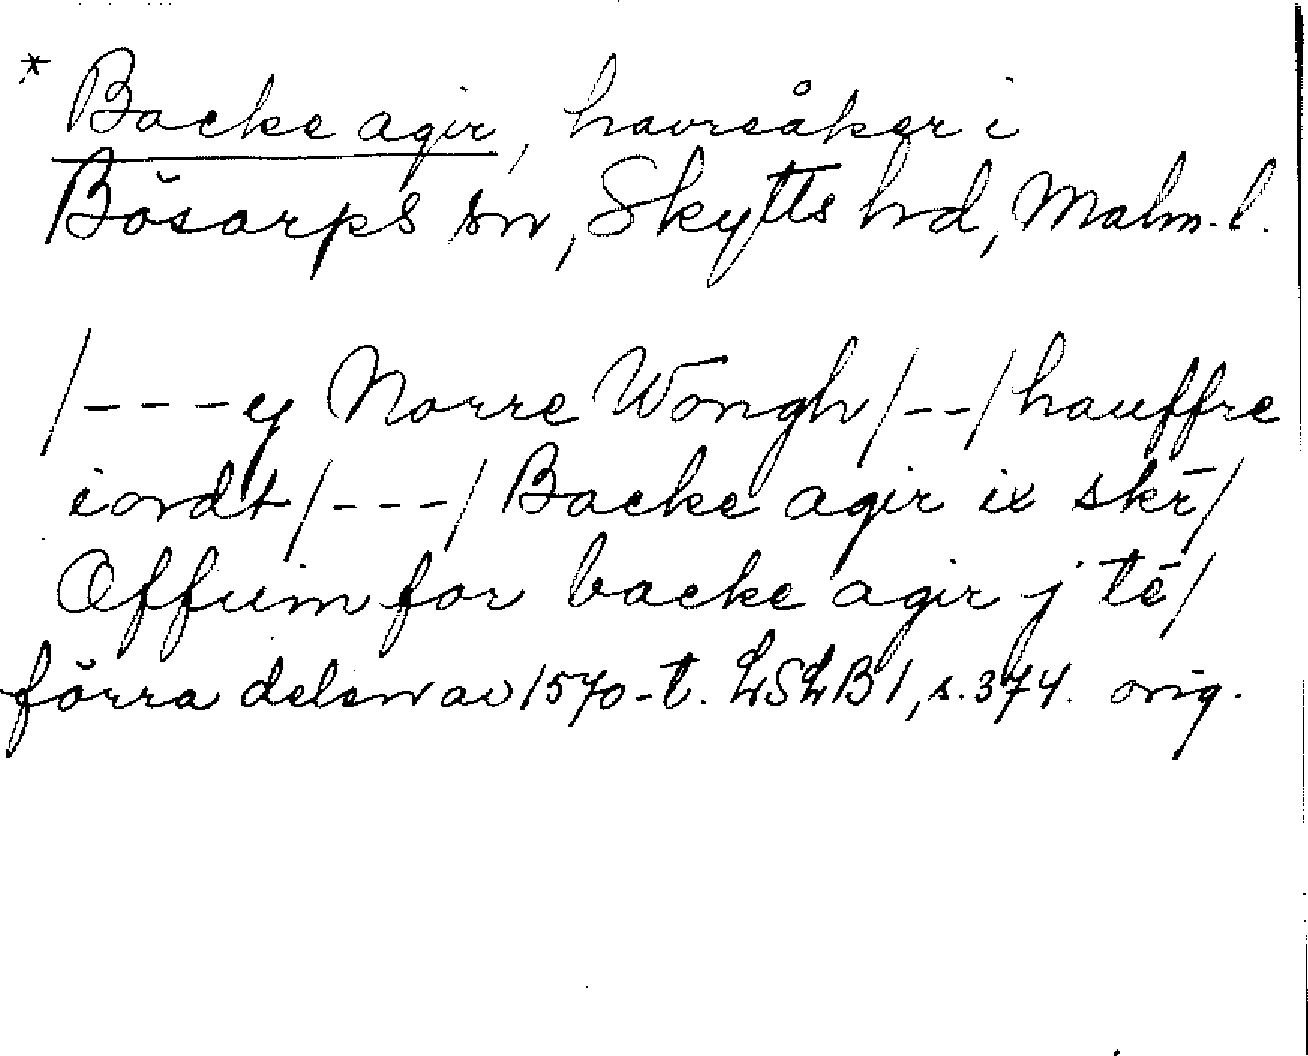 * Backe agir, havreåker i
Bösarps sn, Skytts hd, Malm. l.
/---y Norre Wongh/--/hauffre
iordt/---/Backe agir ix skr̄/
Offuim for backe agir j tē/
förra delen av 1570-t. LSLB 1, s. 374. orig.